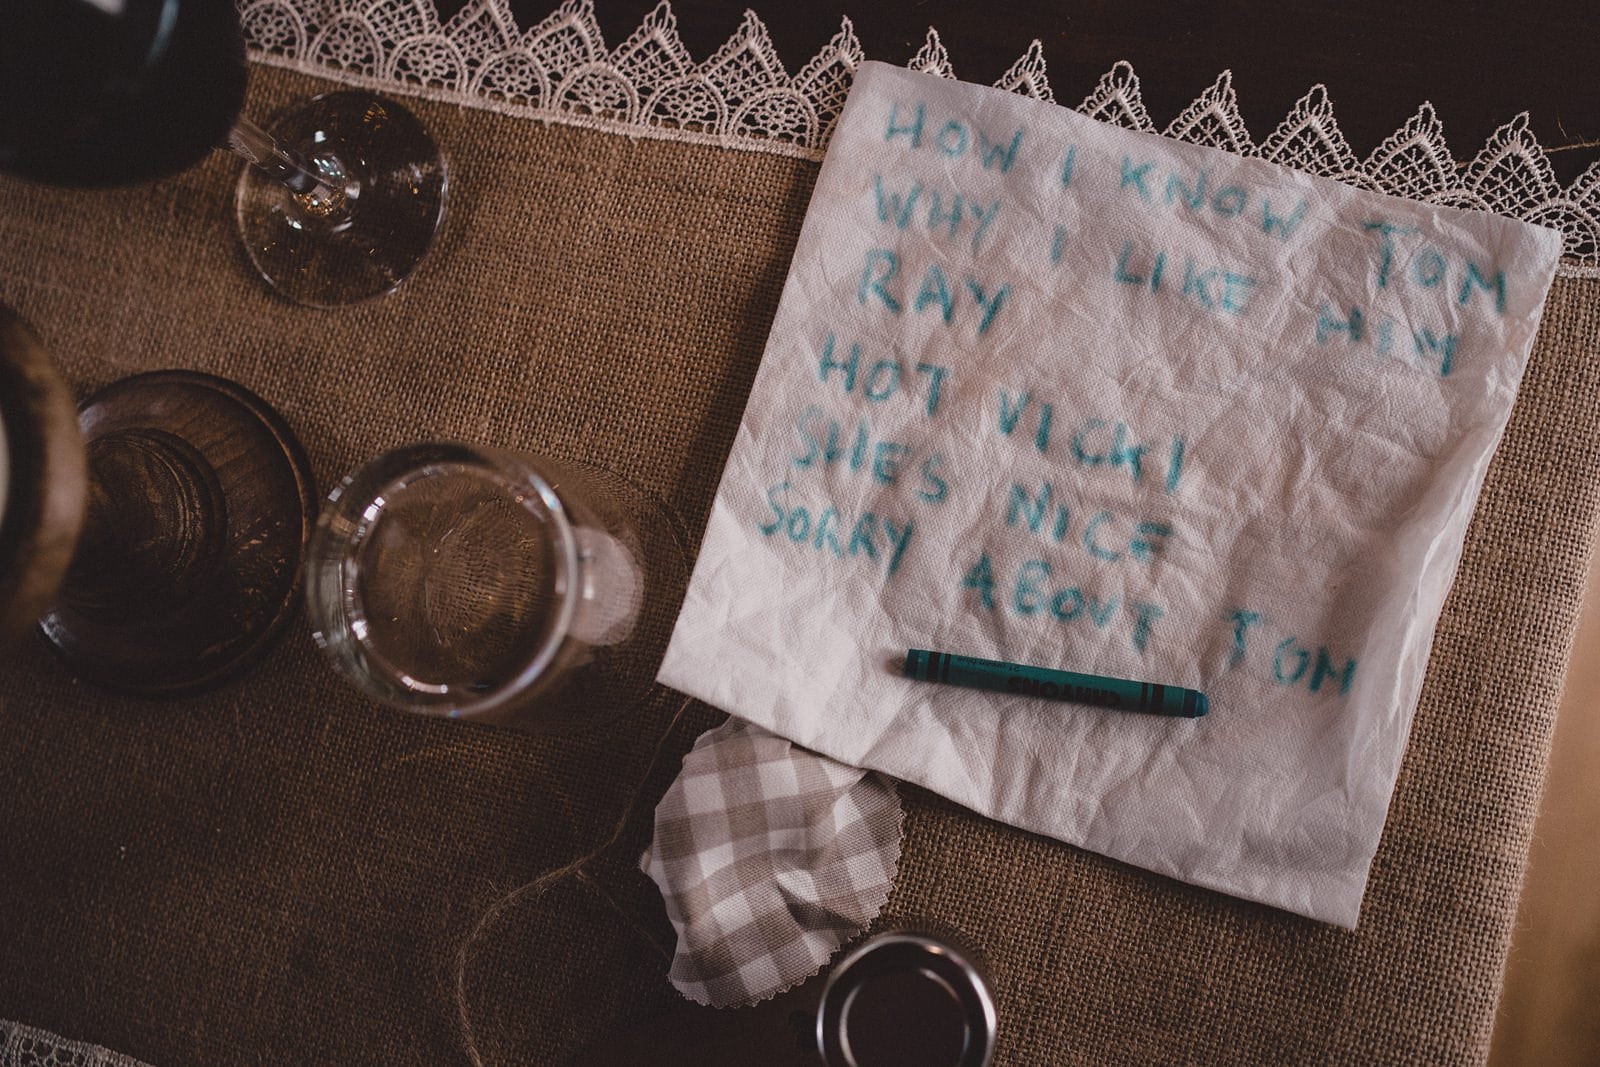 HOW I KNOW TOM
WHY I LIKE HIM
RAY
HOT VICKI
SHE'S NICE
SORRY ABOUT TOM